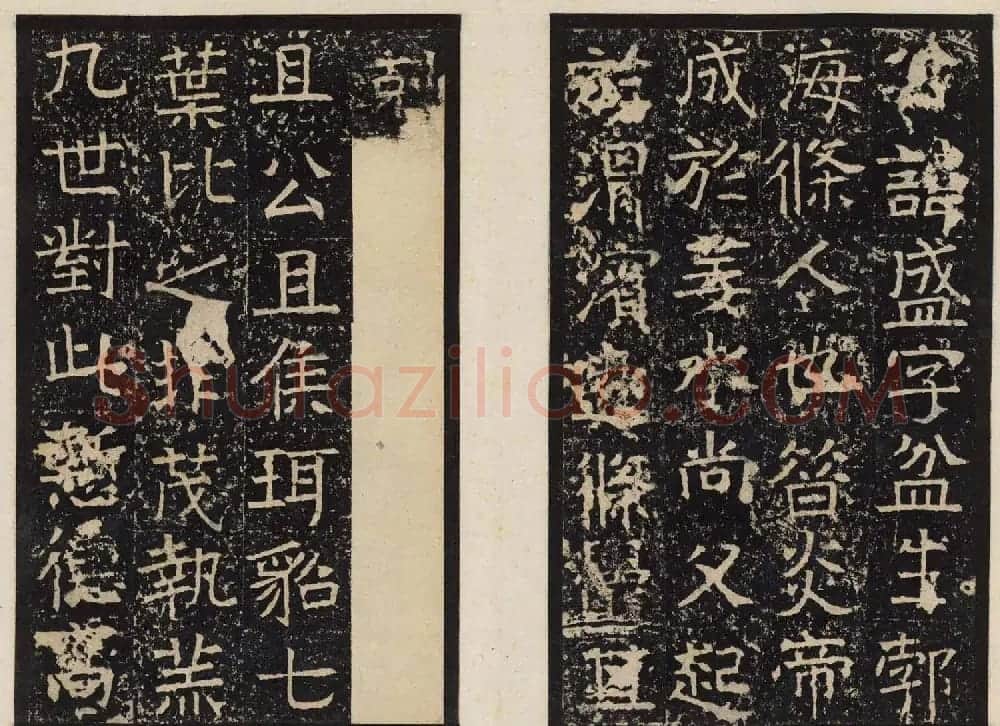 公諱盛字盆生郣
海條人也昔炎帝
成於姜水尚父起
於渭濱遺條
克
且公且侯珥貂七
葉比之於茂執羔
九世對此慙德高
Shufaziliao.COM